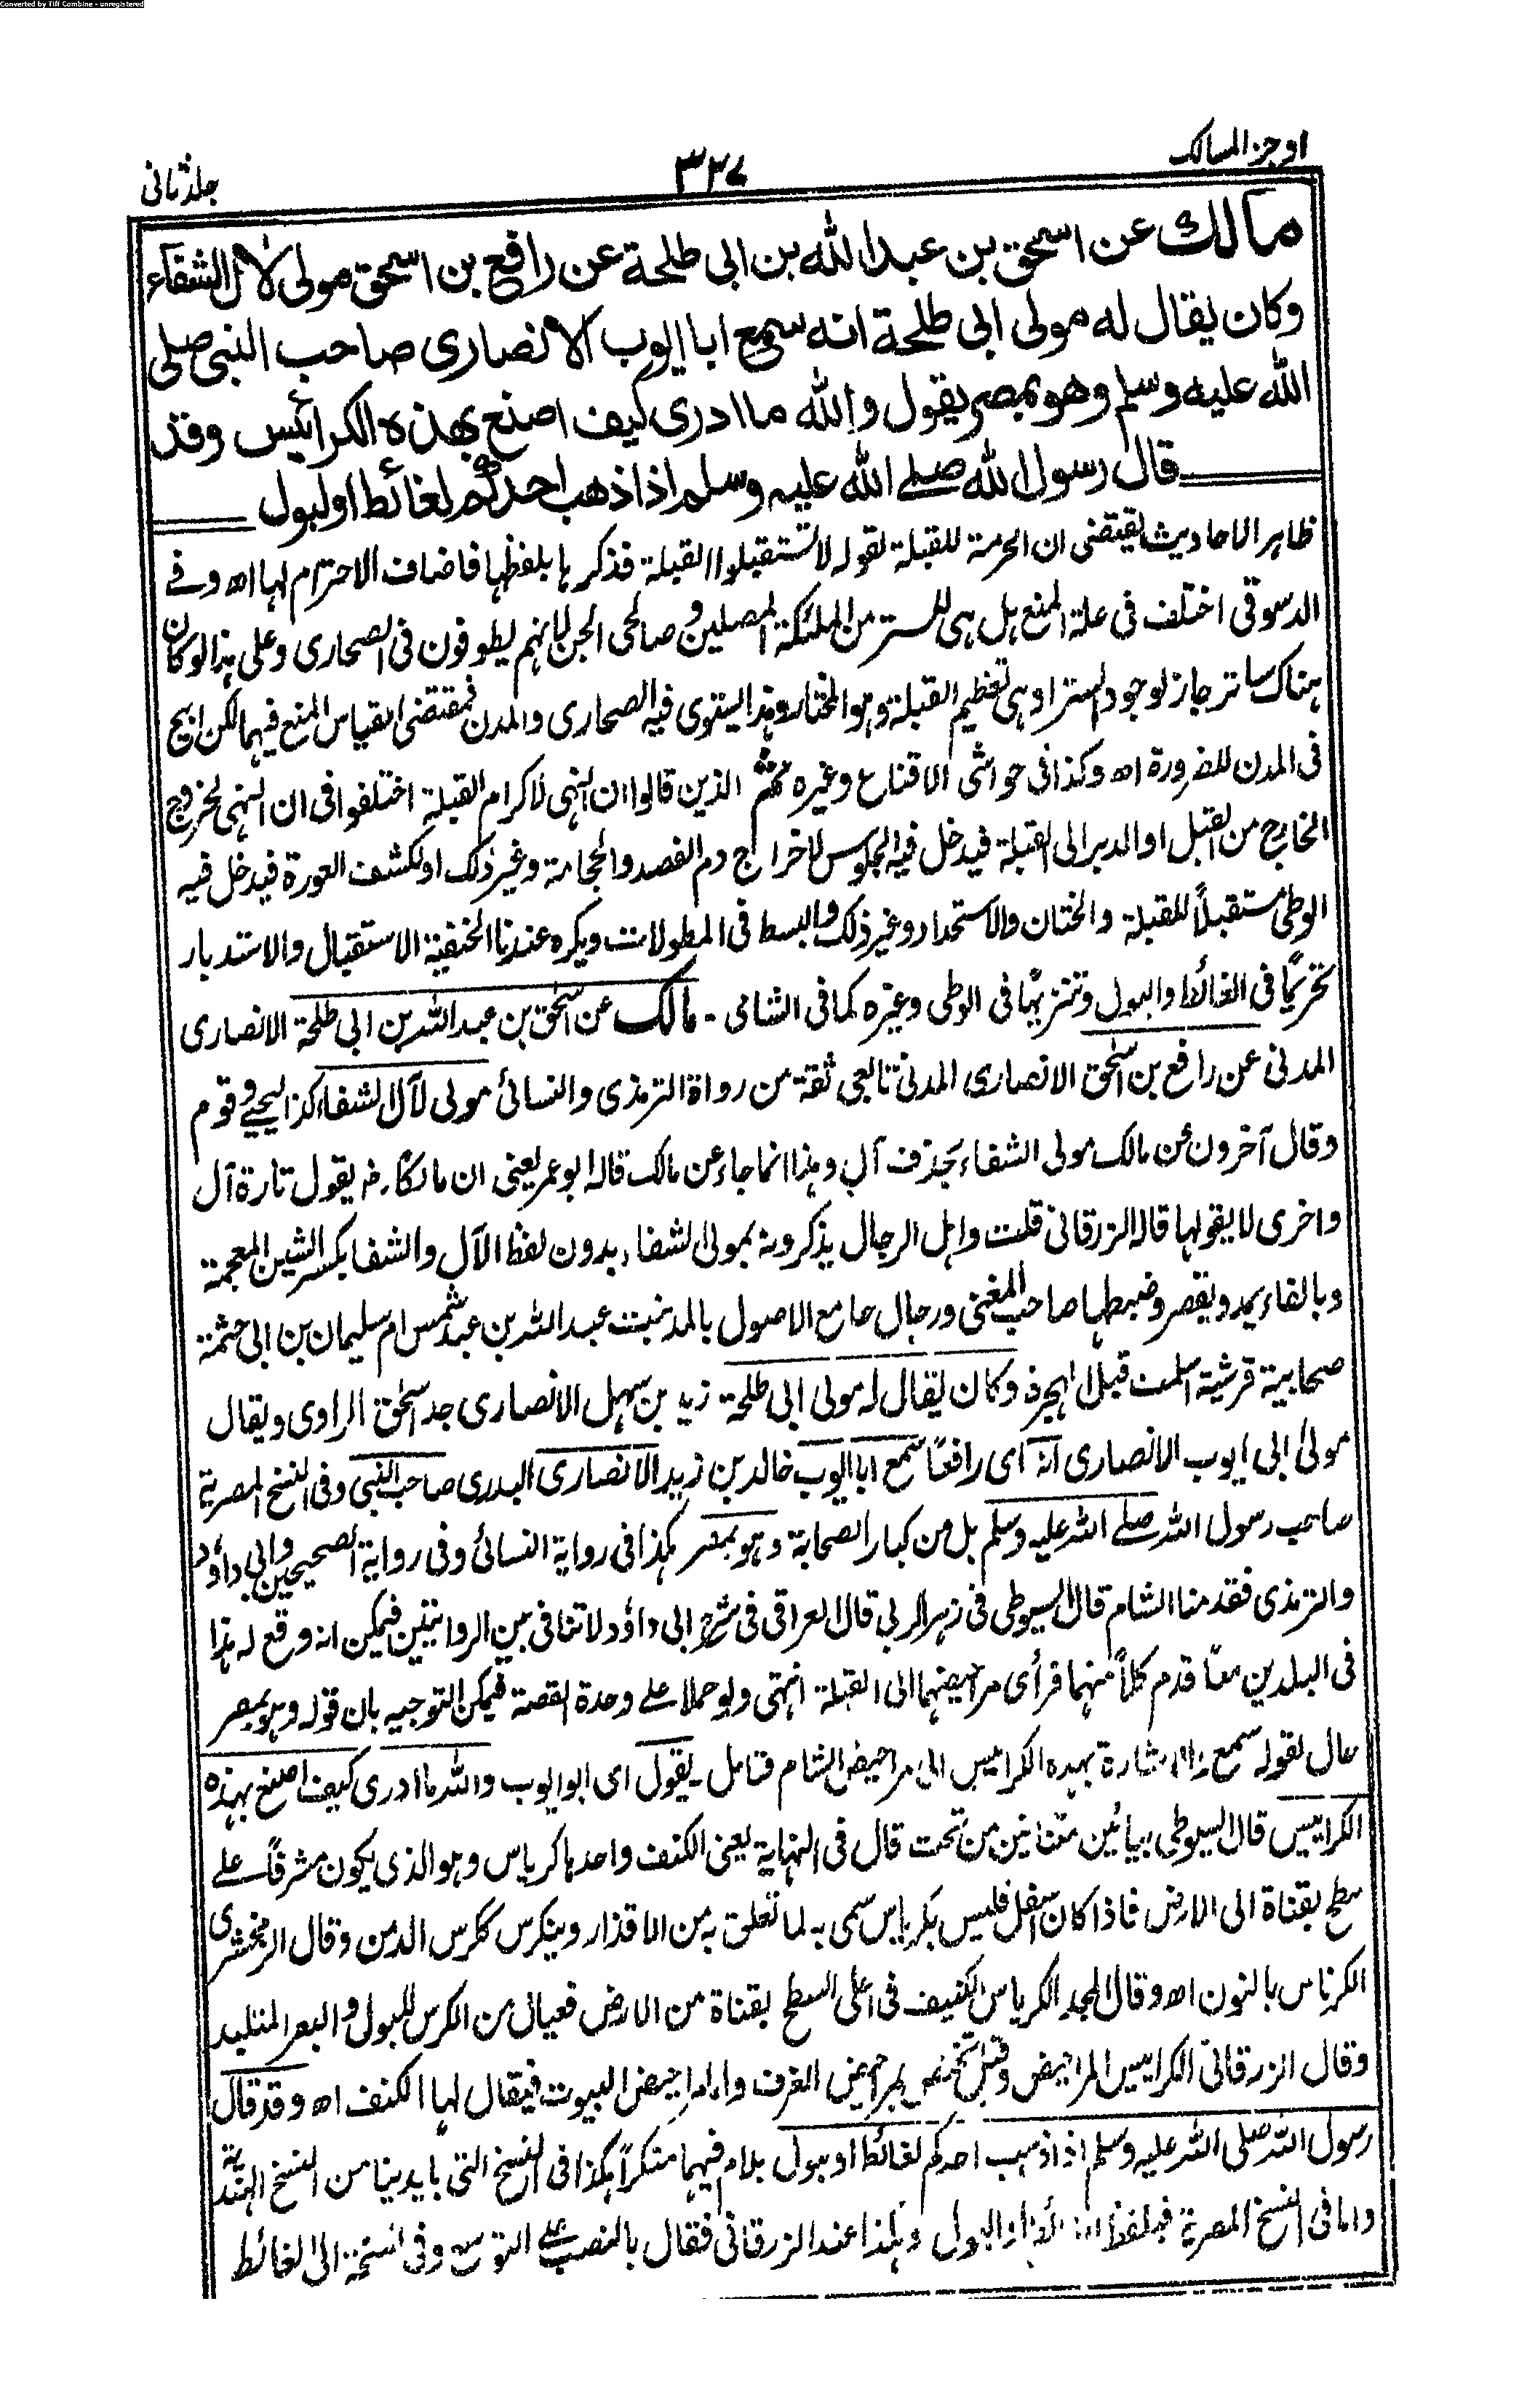 Converted by Tiff Combine - unregistered
اوجز المسالك
٣٣٧
جلد ثانى
مالك عن اسحق بن عبد الله بن ابى طلحة عن رافع بن اسحق مولى لآل الشفاء
وكان يقال له مولى ابى طلحة انه سمع ابا ايوب الانصارى صاحب النبى صلى
الله عليه وسلم وهو بمصر يقول والله ما ادرى كيف اصنع بهذه الكراييس وقد
قال رسول الله صلے الله عليه وسلم اذا ذهب احدكم لغائط او لبول
ظاهر الاحاديث يقتضى ان الحرمة للقبلة لقوله لا تستقبلوا القبلة فذكرها بلفظها فاضاف الاحترام لها اھ وفے
الدسوقى اختلف فى علة المنع هل هى للستر من الملئكة المصلين وصالحى الجن لانهم يطوفون فى الصحارى وعلى هذا لو كان
هناك ساتر جاز لوجود الستر او هى تعظيم القبلة وهو المختار وهذا يستوى فيه الصحارى والمدن فمقتضى القياس المنع فيهما لكن ابيح
فى المدن للضرورة اھ وكذا فى حواشى الاقناع وغيره ثم الذين قالوا ان النهى لاكرام القبلة اختلفوا فى ان النهى لخروج
الخارج من القبل او الدبر الى القبلة فيدخل فيه الجلوس لاخراج دم الفصد والحجامة وغير ذلك او لكشف العورة فيدخل فيه
الوطى مستقبلاً للقبلة والختان والاستحداد وغير ذلك والبسط فى المطولات ويكره عندنا الحنفية الاستقبال والاستدبار
تحريمًا فى الغائط والبول وتنزيهًا فى الوطى وغيره كما فى الشامى - مالك عن اسحٰق بن عبد الله بن ابى طلحة الانصارى
المدنى عن رافع بن اسحٰق الانصارى المدنى تابعى ثقة من رواة الترمذى والنسائى مولى لآل الشفاء كذا ليحيے وقوم
وقال آخرون عن مالك مولى الشفاء بحذف آل وهذا انما جاء عن مالك قاله ابو عمر يعنى ان مالكًا رض يقول تارة آل
واخرى لا يقولها قاله الزرقانى قلت واهل الرجال يذكرونه بمولى الشفاء بدون لفظ الآل والشفا بكسر الشين المعجمة
وبالفاء يمد ويقصر وضبطها صاحب المغنى ورجال جامع الاصول بالمد بنت عبد الله بن عبد شمس ام سليمان بن ابى حثمة
صحابية قرشية اسلمت قبل الهجرة وكان يقال له مولى ابى طلحة زيد بن سهل الانصارى جد اسحٰق الراوى ويقال
مولى ابى ايوب الانصارى انه اى رافعًا سمع ابا ايوب خالد بن زيد الانصارى البدرى صاحب النبى وفى النسخ المصرية
صاحب رسول الله صلے الله عليه وسلم بل من كبار الصحابة وهو بمصر هكذا فى رواية النسائى وفى رواية الصحيحين وابى داؤد
والترمذى فقدمنا الشام قال السيوطى فى زهر الربى قال العراقى فى شرح ابى داؤد لا تنافى بين الروايتين فيمكن انه وقع له هذا
فى البلدين معًا قدم كلاً منهما فرأى مراحيضهما الى القبلة انتهى ولو حملا علے وحدة القصة فيمكن التوجيه بان قوله وهو بمصر
حال لقوله سمع والاشارة بهذه الكراييس الى مراحيض الشام فتامل - يقول اى ابو ايوب والله ما ادرى كيف اصنع بهذه
الكراييس قال السيوطى بيائين مثناتين من تحت قال فى النهاية يعنى الكنف واحدها كرياس وهو الذى يكون مشرفًا علے
سطح بقناة الى الارض فاذا كان اسفل فليس بكرياس سمى به لما تعلق به من الاقذار ويتكرس ككرس الدمن وقال الزمخشرى
الكرناس بالنون اھ وقال المجد الكرياس الكنيف فى اعلى السطح بقناة من الارض فعيال من الكرس للبول والبعر المتلبد
وقال الزرقانى الكراييس المراحيض وقيل تختص بمراحيض الغرف واما مراحيض البيوت فيقال لها الكنف اھ وقد قال
رسول الله صلى الله عليه وسلم اذا ذهب احدكم لغائط او بول بلام فيهما منكراً هكذا فى النسخ التى بايدينا من النسخ الهندية
واما فى النسخ المصرية فبلفظ الغائط او البول وهكذا عند الزرقانى فقال بالنصب على التوسع وفى نسخة الى الغائط